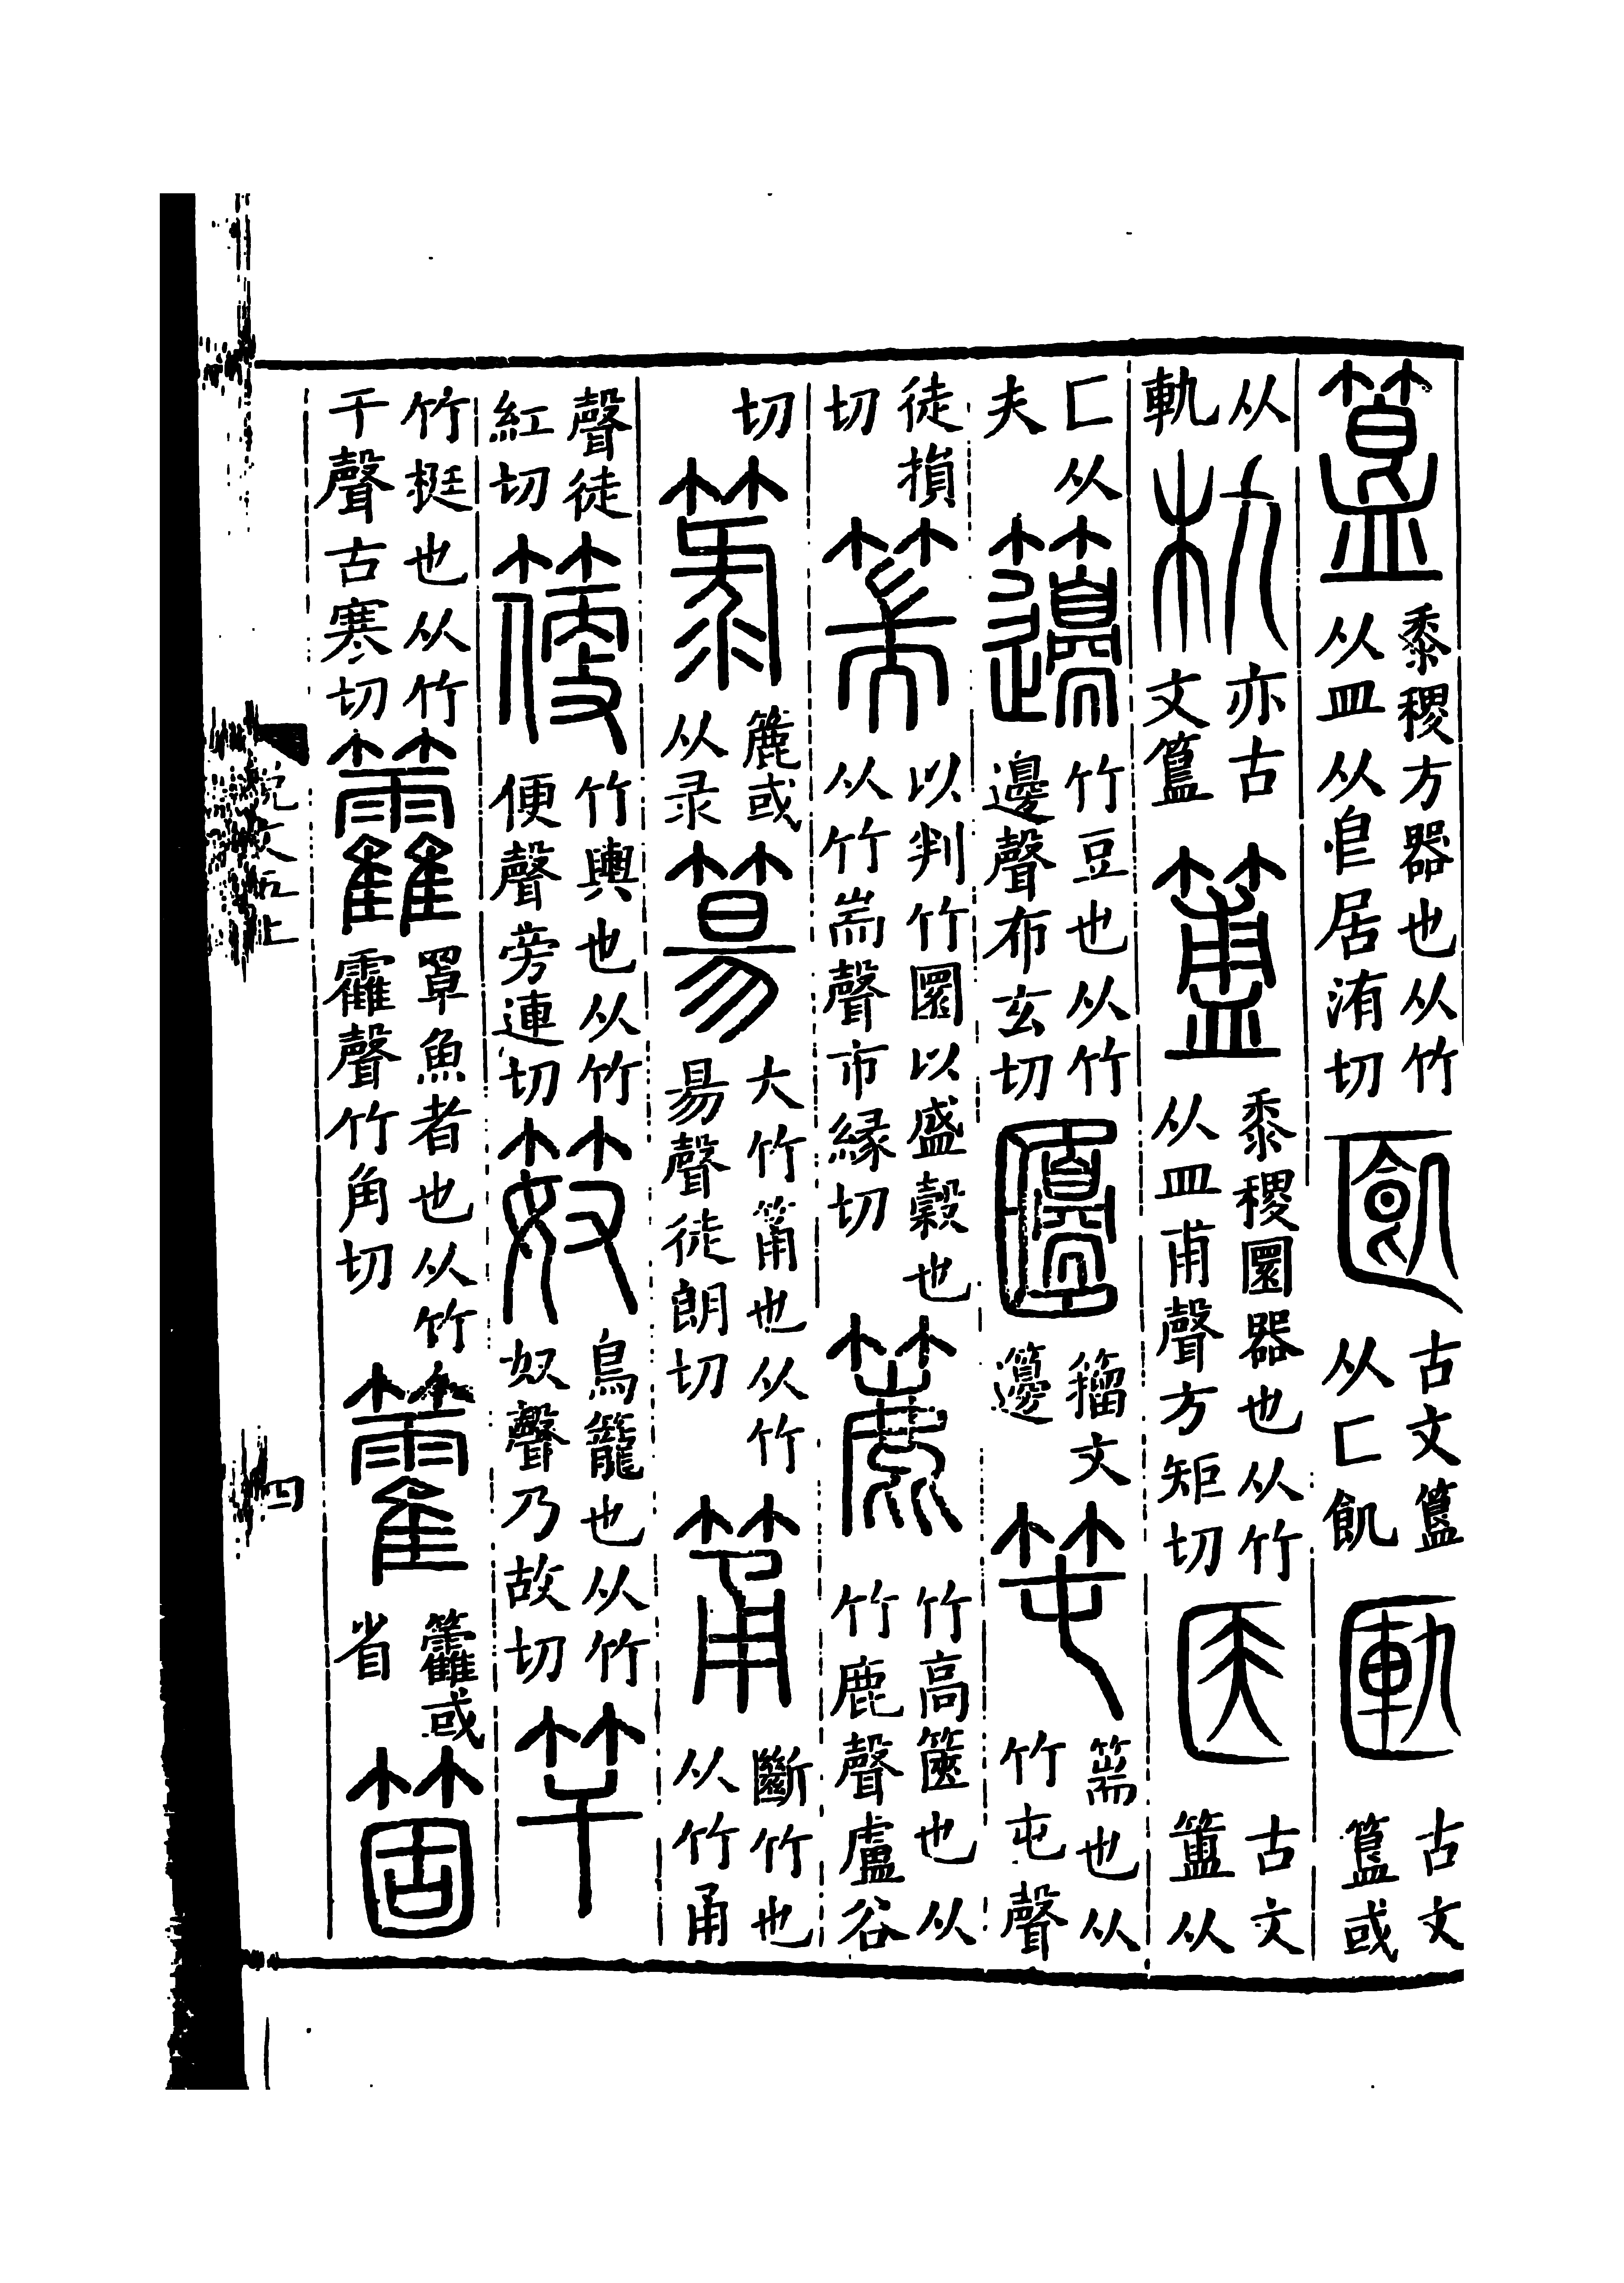 簋黍稷方器也从竹从皿从皀居洧切𠥗古文簋从匚飢匭古文簋或
从軌朹亦古文簋簠黍稷圜器也从竹从皿甫聲方矩切𠤾古文簠从
匚从夫籩竹豆也从竹邊聲布玄切𠥊籀文籩笹篅也从竹屯聲
徒損切篅以判竹圜以盛穀也从竹耑聲市緣切簏竹高篋也从竹鹿聲盧谷
切箓簏或从录簜大竹筩也从竹昜聲徒朗切筩斷竹也从竹甬
聲徒紅切箯竹輿也从竹便聲旁連切笯鳥籠也从竹奴聲乃故切竿
竹挺也从竹干聲古寒切籱罩魚者也从竹靃聲竹角切籗籱或省箇
說文五上
四